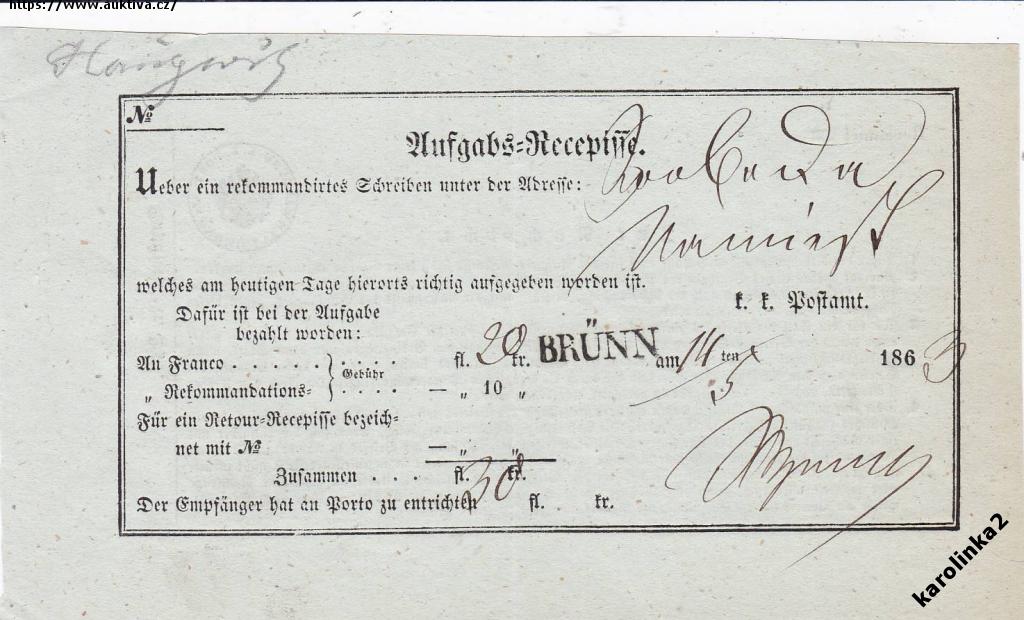 https://www.auktiva.cz/
№
Aufgabs-Recepisse.
Ueber ein rekommandirtes Schreiben unter der Adresse:
Namiest
welches am heutigen Tage hierorts richtig aufgegeben worden ist.
k. k. Postamt.
Dafür ist bei der Aufgabe
bezahlt worden:
An Franco . . . . . } Gebühr . . . . fl. 20 kr. BRÜNN am 14 ten /5 186 3
„ Rekommandations- } . . . . — „ 10 „
Für ein Retour-Recepisse bezeich-
net mit № — „ „
Zusammen . . . fl. 30 kr.
Der Empfänger hat an Porto zu entrichten fl. kr.
karolinka2